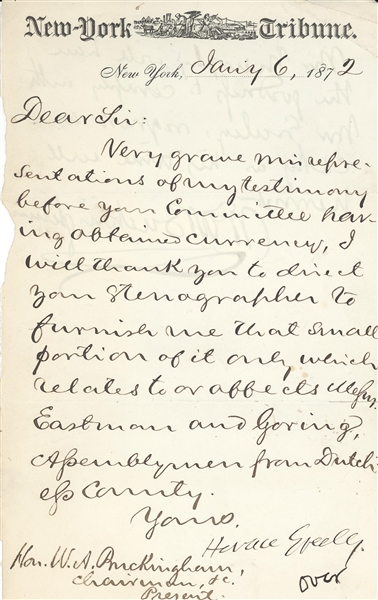 New-York Tribune.
New York, Jan'y 6, 1872
Dear Sir:
Very grave misrepre-
sentations of my testimony
before your Committee hav-
ing obtained currency, I
will thank you to direct
your stenographer to
furnish me that small
portion of it only which
relates to or affects Messrs.
Eastman and Goring,
Assemblymen from Dutch-
ess County.
Yours,
Horace Greeley.
Hon. W. A. Buckingham,
Chairman, &c.
Present.
over